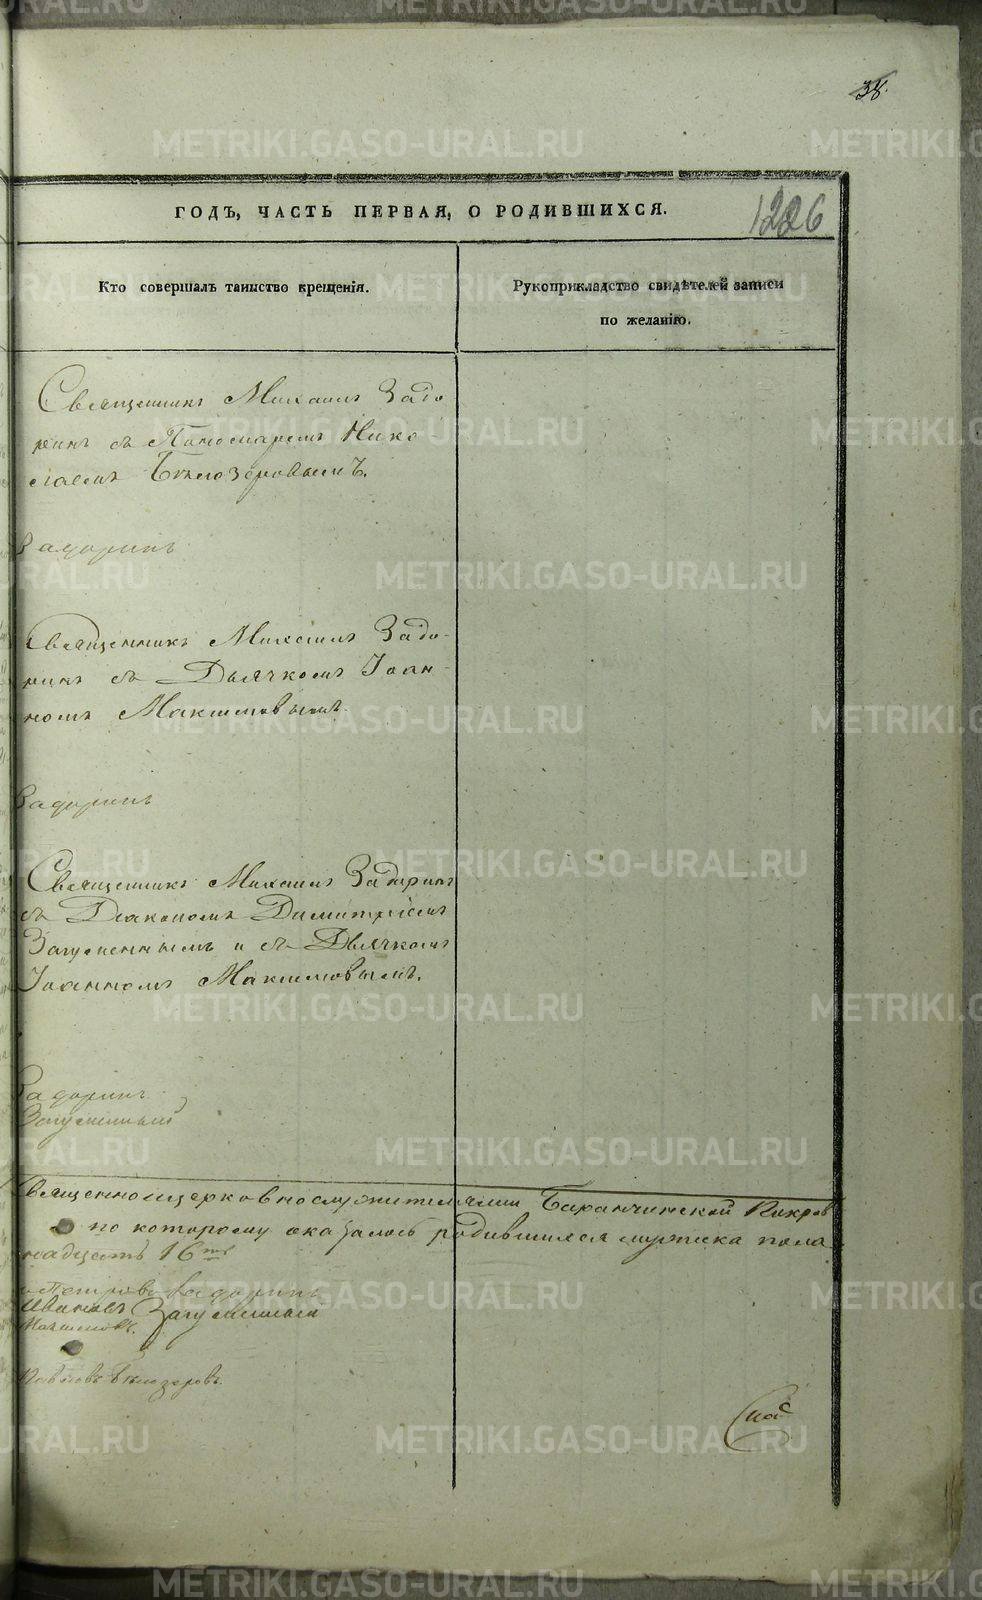 38.
ГОДЪ, ЧАСТЬ ПЕРВАЯ, О РОДИВШИХСЯ.
1226
Кто совершалъ таинство крещенія.
Рукоприкладство свидѣтелей записи
по желанію.
Священникъ Михаилъ Задо
ринъ съ Пономаремъ Нико
лаемъ Бѣлозеровымъ.
Задоринъ
Священникъ Михаилъ Задо-
ринъ съ Дьячкомъ Іоан-
номъ Максимовымъ.
Задоринъ
Священникъ Михаилъ Задоринъ
съ Діакономъ Димитріемъ
Загуменнымъ и съ Дьячкомъ
Іоанномъ Максимовымъ.
Задоринъ
Загуменный
Священноцерковнослужителями Баранчинской Покров
по которому оказалось родившихся мужеска пола
надцать 16ть
Петровъ Задоринъ
Ивановъ Загуменный
Максимовъ.
Павловъ Бѣлозеровъ.
METRIKI.GASO-URAL.RU